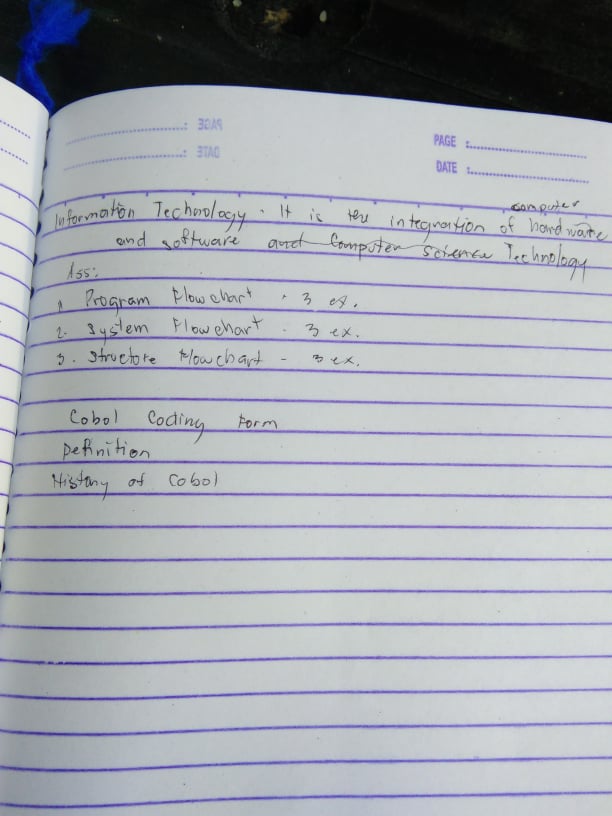 PAGE :
DATE :
PAGE :
DATE :
computer
Information Technology - It is the integration of hardware
and software and Computer Science Technology
Ass:
1. Program Flowchart - 3 ex.
2. System Flowchart - 3 ex.
3. Structure Flowchart - 3 ex.
Cobol Coding Form
Definition
History of Cobol